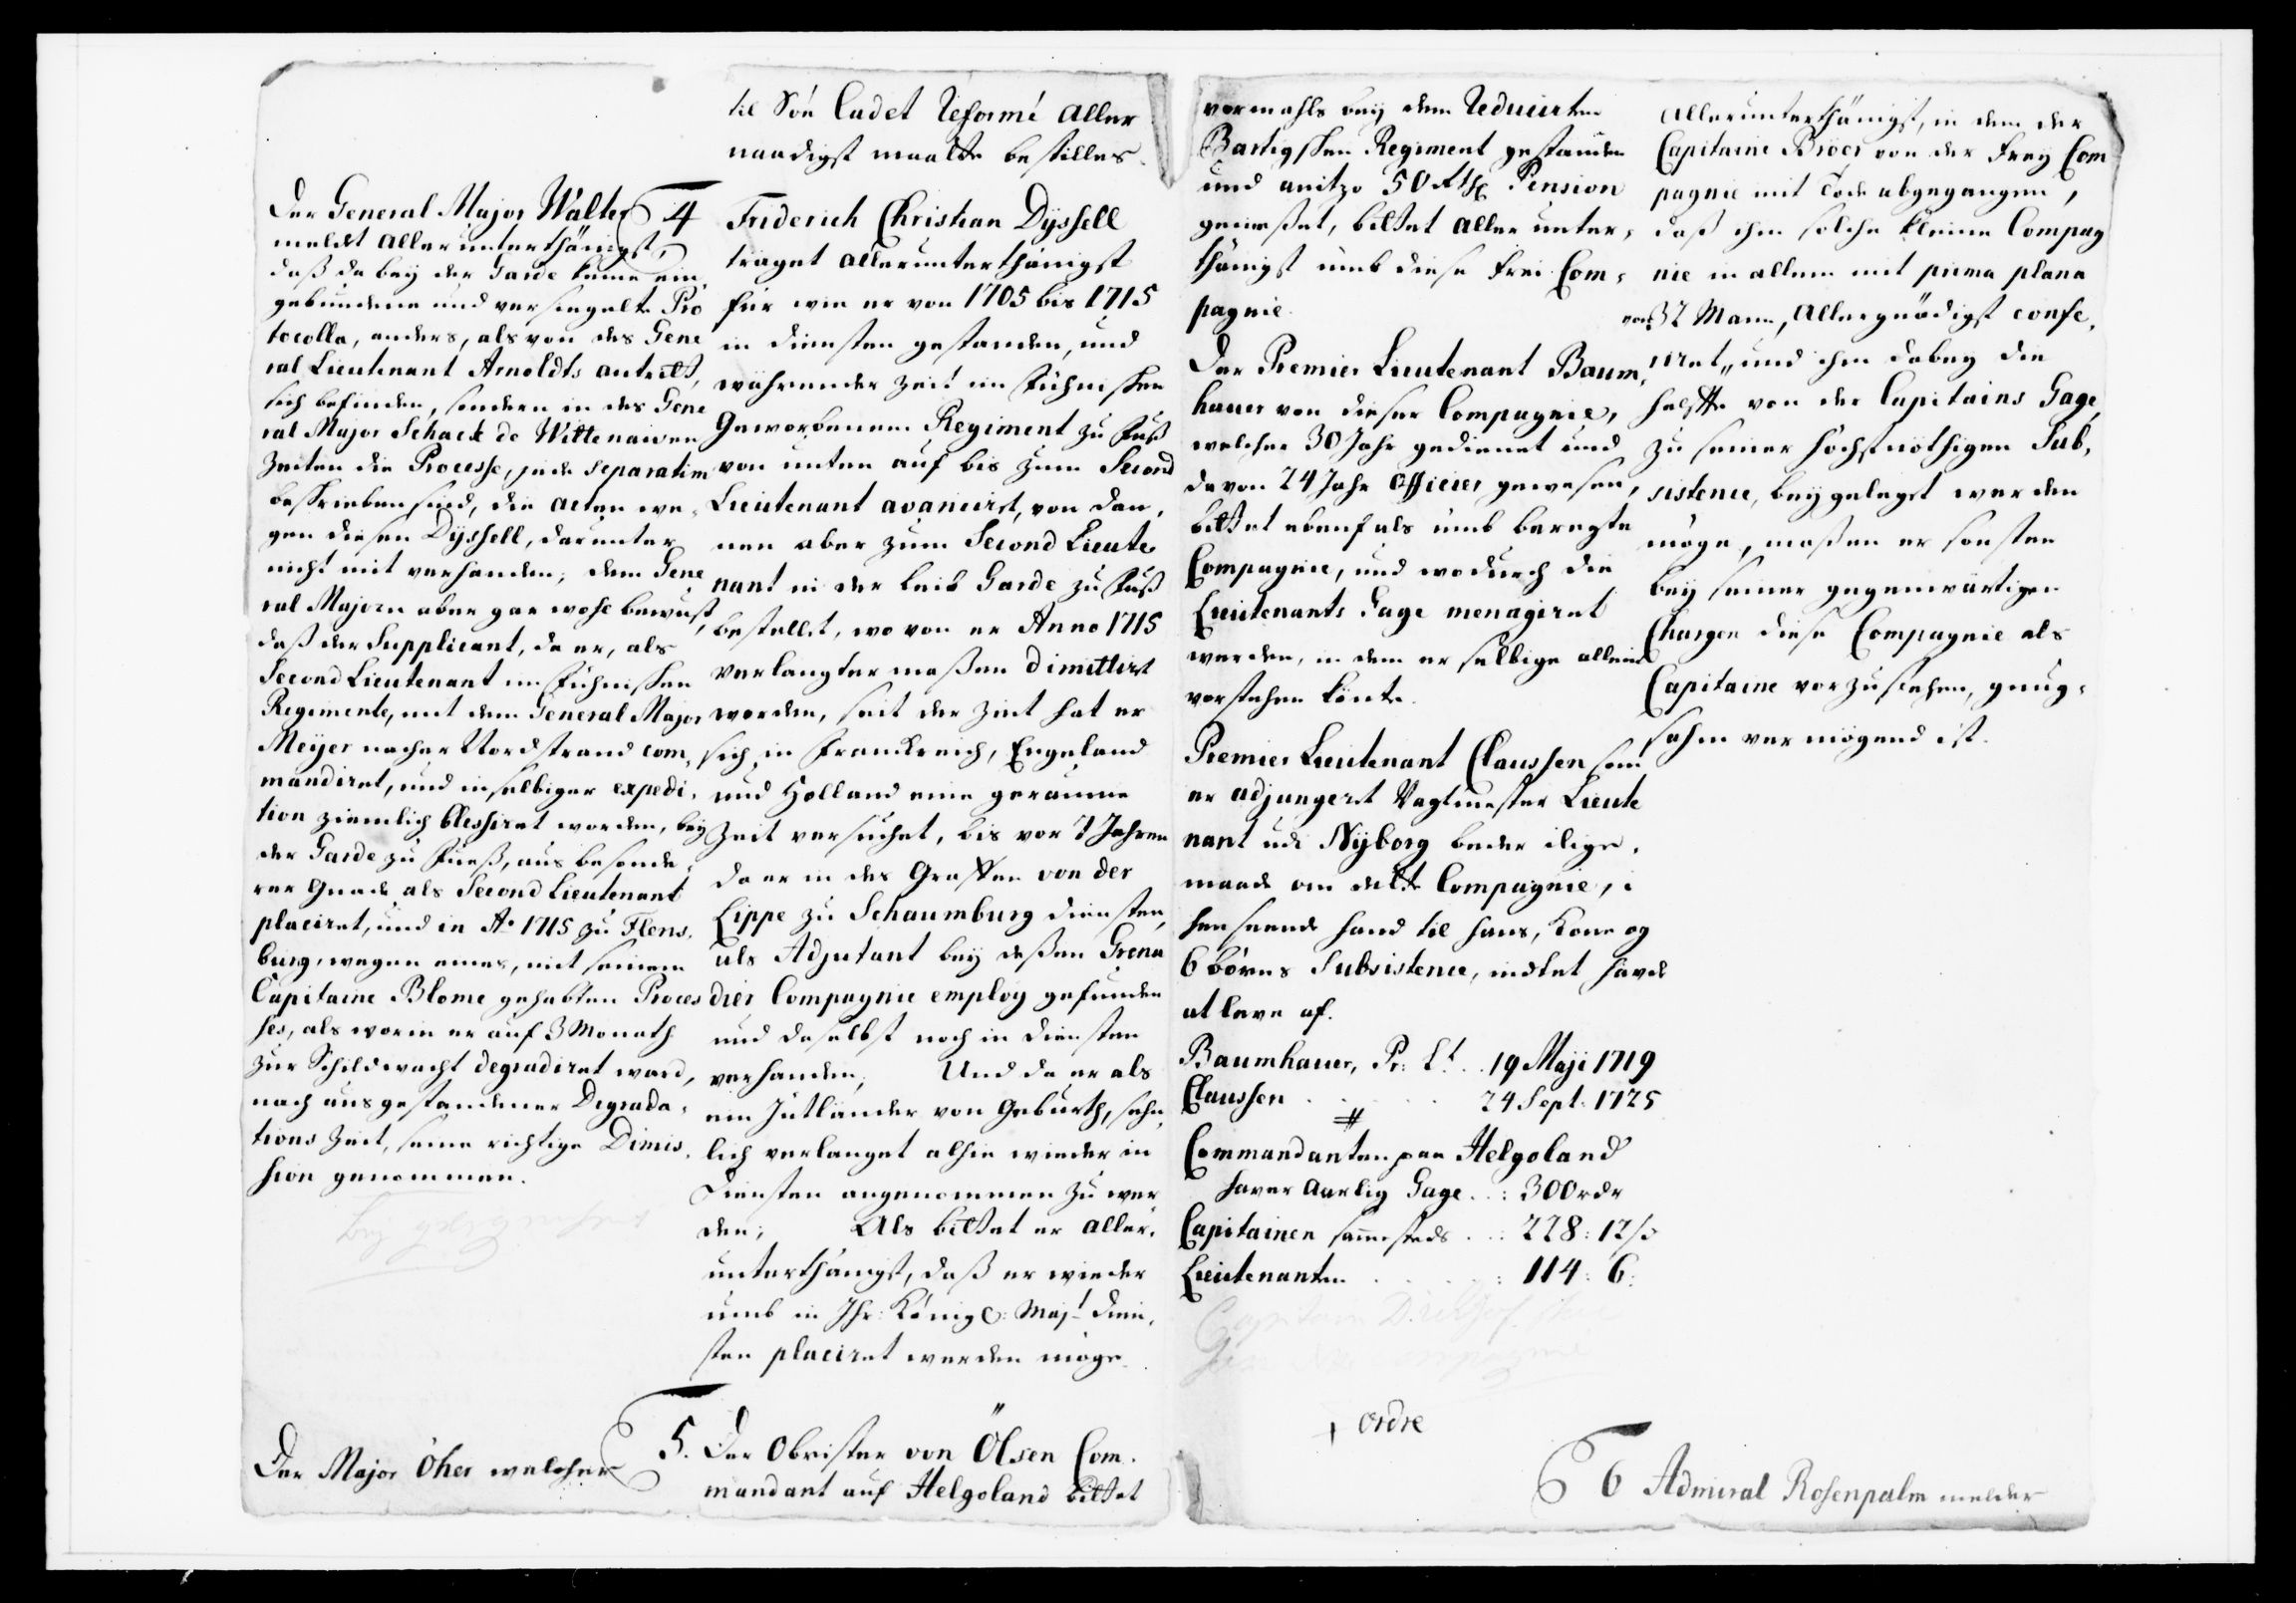 til Söe Cadet Reformé aller
naadigst maatte bestilles.
Der General Major Walter
meldet allerunterthänigst,
daß da bey der Garde keine ein,
gebundene und versiegelte Pro
tocolla, anders, als von des Gene
ral Lieutenant Arnoldts antritt,
sich befinden, sondern in des Gene
ral Major Schack de Wittenauven
Zeiten die Processe, jede separatim
beschrieben sind, die acten we,
gen diesen Dyssell, darunter
nicht mit verhanden; dem Gene
ral Majorn aber gar wohl bewust,
daß der Supplicant, da er, als
Second Lieutenant im Fühnischen
Regimente, mit dem General Major
Meyer nacher Nordstrand com,
mandiret, und in selbiger expedi,
tion ziemlich blessiret worden, bey
der Garde zu Fueß, aus besonde,
rer Gnade als Second Lieutenant
placiret, und in Ao 1715 zu Flens,
burg, wegen eines, mit seinem
Capitaine Blome gehabten Proces
ses, als worin er auf 3 Monath
zur Schildwacht degradiret ward,
nach ausgestandener Degrada,
tions Zeit, seine richtige Dimis,
sion genommen.
4
Friderich Christian Dyssell
traget allerunterthänigst
für wie er von 1705 bis 1715
in diensten gestanden, und
währender Zeit im Fühnischen
Geworbenen Regiment zu Fuß
von unten auf bis zum Second
Lieutenant avanciret, von dan,
nen aber zum Second Lieute
nant in der Leib Garde zu Fuß
bestellet, wo von er Anno 1715
verlangter maßen dimittirt
worden, seit der Zeit hat er
sich in Franckreich, Engeland
und Holland eine geraume
Zeit versuchet, bis vor 7 Jahren
da er in des Graffen von der
Lippe zu Schaumburg diensten,
als Adjutant bey deßen Grena
dier Compagnie employ gefunden
und daselbst noch in diensten
verhanden; Und da er als
ein Jütländer von Geburth, sehn,
lich verlanget alhie wieder in
diensten angenommen zu wer
den; Als bittet er aller,
unterthänigst, daß er wieder
umb in Ihr: Königl: Mayt dien,
sten placiret werden möge.
Der Major Öher welcher
5. Der Obrister von Ölsen Com,
mandant auf Helgoland bittet
vormahls bey dem Reducirten
Bartigschen Regiment gestanden
und anitzo 50 Rthl Pension
genießet, bittet aller unter,
thänigst umb diese Frei Com,
pagnie.
Der Premier Lieutenant Baum,
hauer von dieser Compagnie,
welcher 30 Jahr gedienet und
davon 24 Jahr Officier gewesen,
bittet ebenfals umb beregte
Compagnie, und wodurch die
Lieutenants Gage menagiret
werden, in dem er selbige allein
vorstehen könte.
Premier Lieutenant Claussen som
er adjungeret Vagtmester Lieute
nant udi Nyborg beder lige,
maade om dette Compagnie, i
henseende hand til hans, Kone og
6 börns Subsistence, intet havde
at leve af.
Baumhauer, Pr: Lt. .. 19 Maji 1719
Claussen . . . . 24 Sept: 1725
#
Commandanten paa Helgoland
haver aarlig Gage .. : 300 rdr
Capitainen sammesteds . .: 228: 12 ß
Lieutenanten . . . . : 114: 6:
+ ordre
allerunterthänigst, in dem der
Capitaine Bröer von der Frey Com
pagnie mit Tode abgegangen,
daß ihm solche kleine Compag
nie in allem mit prima plana
von 32 Mann, Allergnädigst confe,
riret, und ihm dabey die
helffte von der Capitains Gage,
zu seiner höchstnöthigen Sub,
sistence, beygeleget werden
möge, maßen er sonsten
bey seiner gegenwärtigen
Chargen diese Compagnie als
Capitaine vorzustehen, gnug,
sahm vermögend ist.
6 Admiral Rosenpalm melder